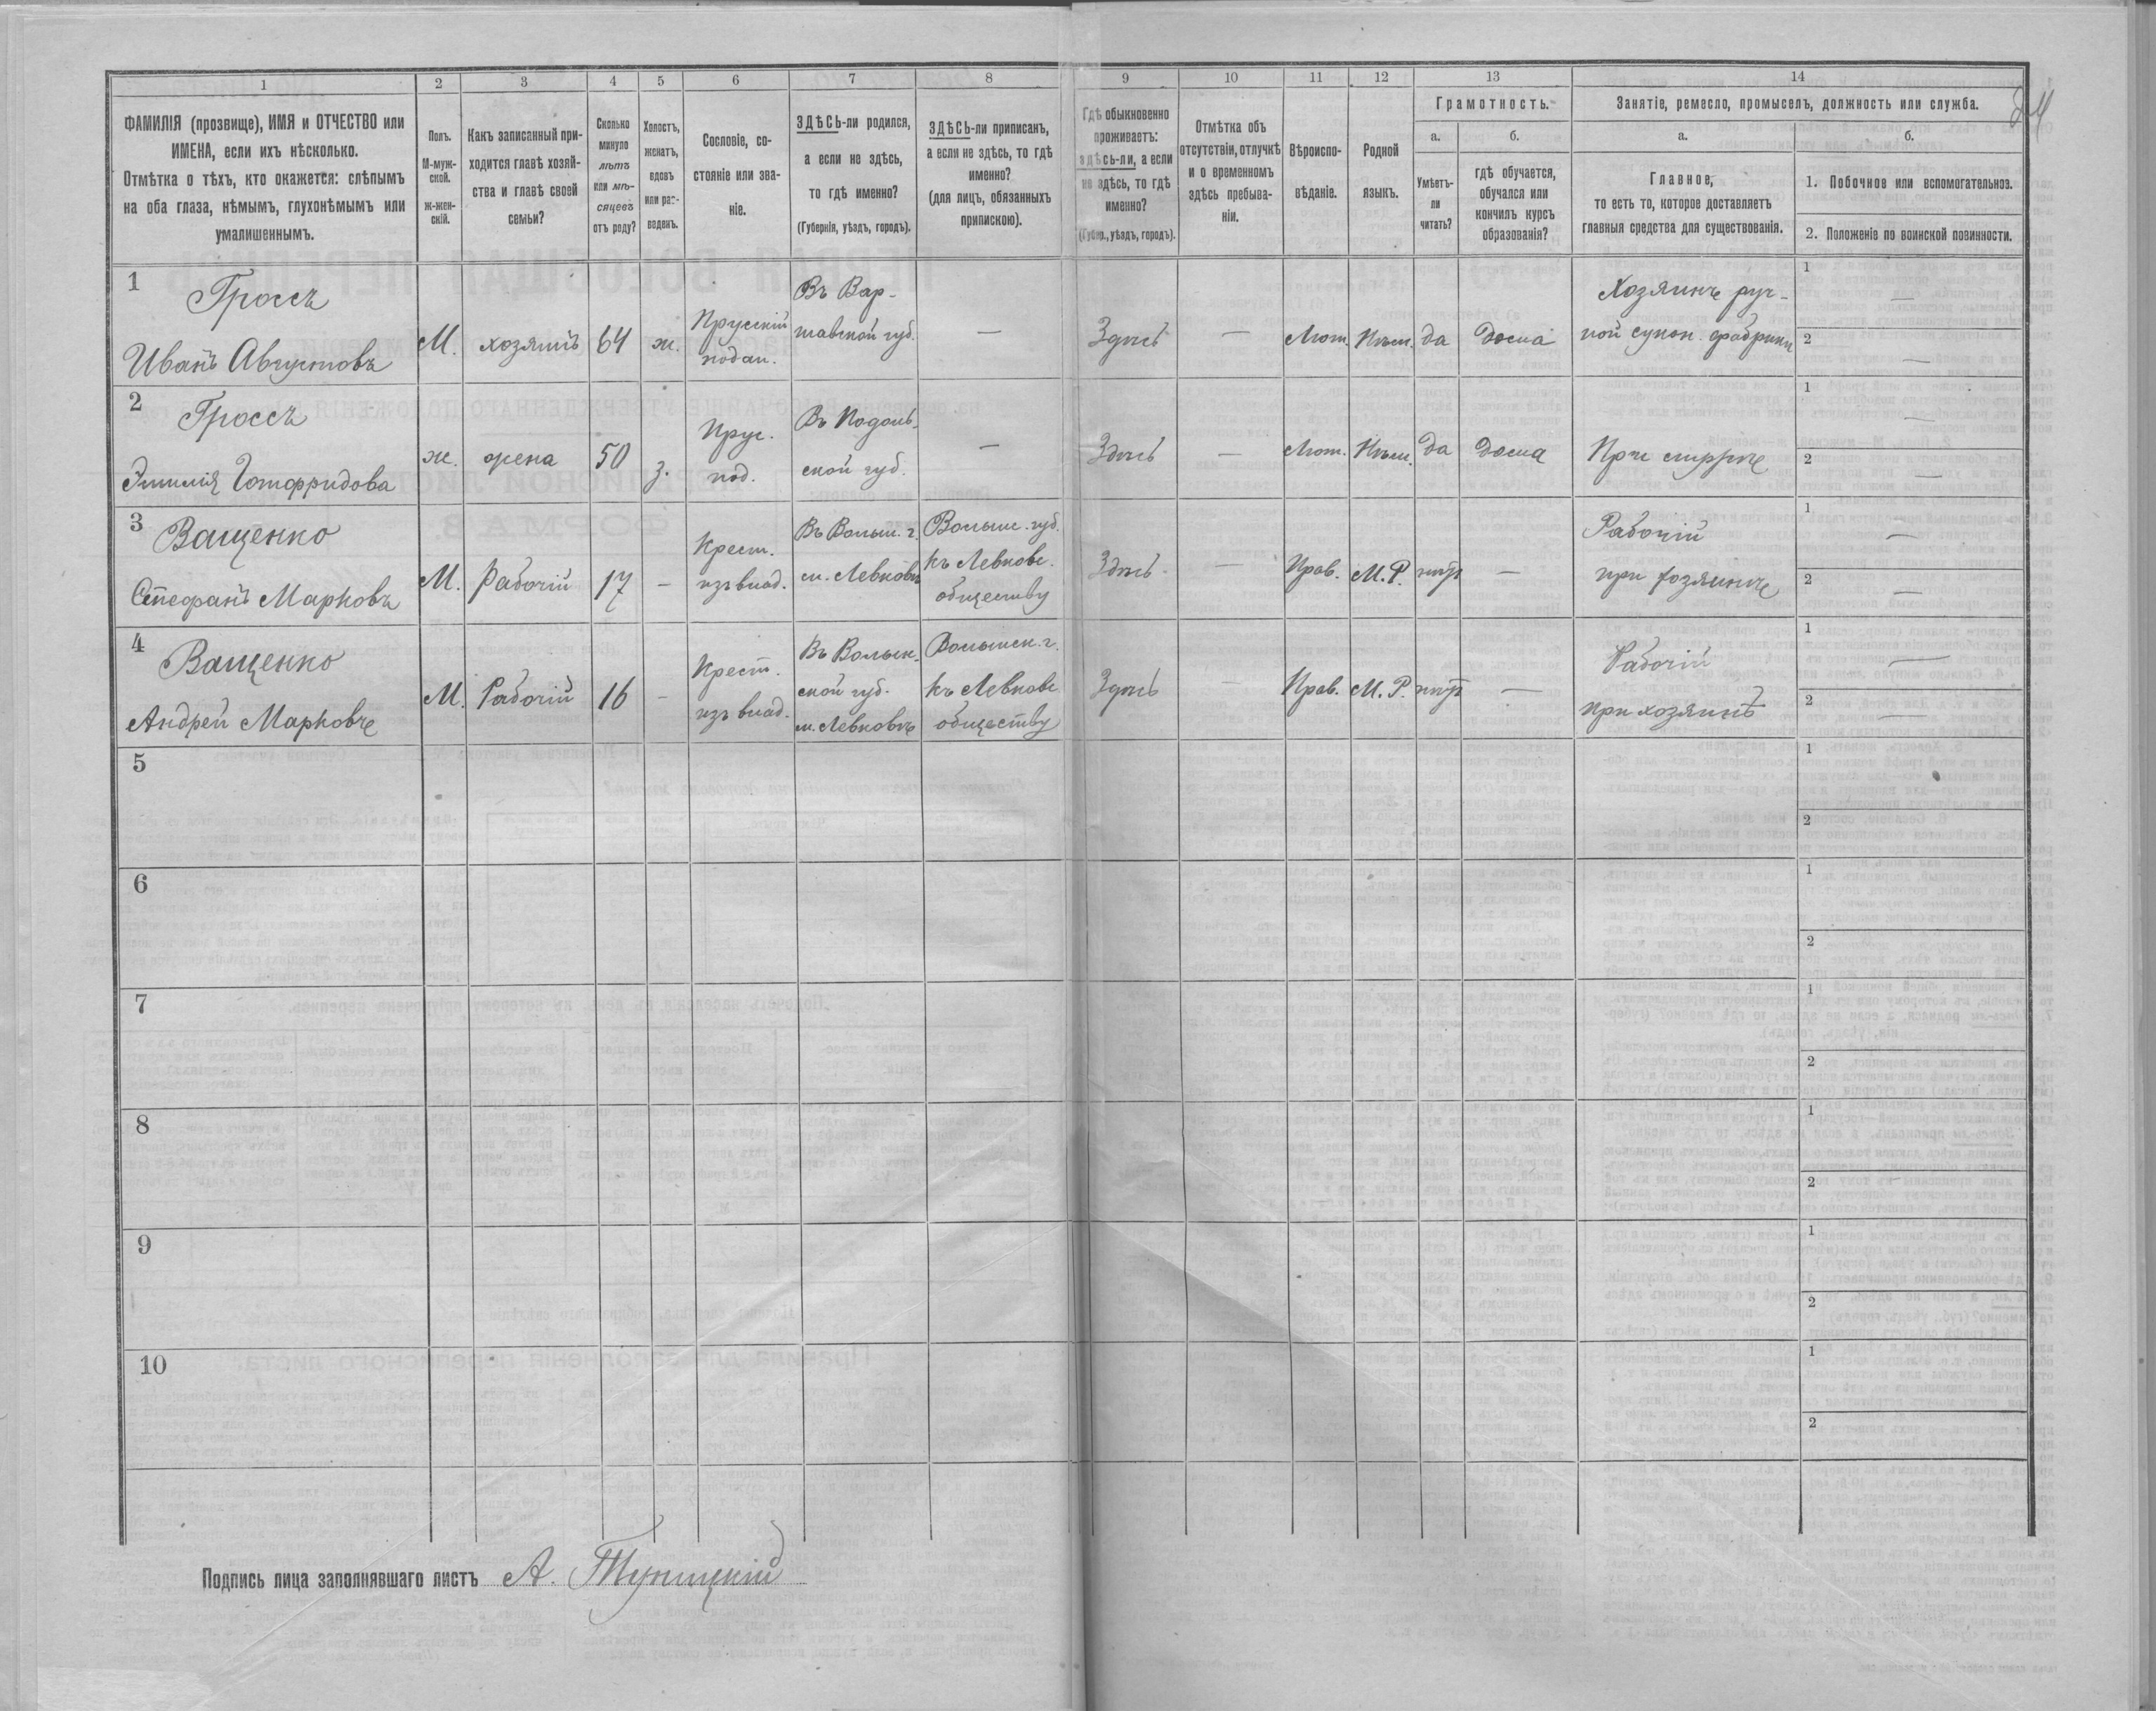 1 2 3 4 5 6 7 8 9 10 11 12 13 14
ФАМИЛІЯ (прозвище), ИМЯ и ОТЧЕСТВО или
ИМЕНА, если ихъ нѣсколько.
Отмѣтка о тѣхъ, кто окажется: слѣпымъ
на оба глаза, нѣмымъ, глухонѣмымъ или
умалишеннымъ.
Полъ.
М-муж-
ской.
ж-жен-
скій.
Какъ записанный при-
ходится главѣ хозяй-
ства и главѣ своей
семьи?
Сколько
минуло
лѣтъ
или мѣ-
сяцевъ
отъ роду?
Холостъ,
женатъ,
вдовъ
или раз-
веденъ.
Сословіе, со-
стояніе или зва-
ніе.
ЗДѢСЬ-ли родился,
а если не здѣсь,
то гдѣ именно?
(Губернія, уѣздъ, городъ).
ЗДѢСЬ-ли приписанъ,
а если не здѣсь, то гдѣ
именно?
(для лицъ, обязанныхъ
припискою).
Гдѣ обыкновенно
проживаетъ:
здѣсь-ли, а если
не здѣсь, то гдѣ
именно?
(Губер., уѣздъ, городъ).
Отмѣтка объ
отсутствіи, отлучкѣ
и о временномъ
здѣсь пребыва-
ніи.
Вѣроиспо-
вѣданіе.
Родной
языкъ.
Грамотность.
а.
Умѣетъ-
ли
читать?
б.
гдѣ обучается,
обучался или
кончилъ курсъ
образованія?
Занятіе, ремесло, промыселъ, должность или служба.
а.
Главное,
то есть то, которое доставляетъ
главныя средства для существованія.
б.
1. Побочное или вспомогательное.
2. Положеніе по воинской повинности.
1
Гроссъ
Иванъ Августовъ
М.
хозяинъ
64
ж.
Прусскій
подан.
Въ Вар-
шавской губ.
—
Здѣсь
—
Лют.
Нѣм.
да
дома
Хозяинъ руч-
ной сукон. фабрики
1 —
2 —
2
Гроссъ
Эмилія Готфридова
ж.
жена
50
з.
Прус.
под.
Въ Подоль-
ской губ.
—
Здѣсь
—
Лют.
Нѣм.
да
дома
При мужѣ
1 —
2 —
3
Ващенко
Стефанъ Марковъ
М.
Рабочій
17
—
Крест.
изъ влад.
Въ Волын. г.
м. Левковъ
Волын. губ.
къ Левков.
обществу
Здѣсь
—
Прав.
М. Р.
нѣтъ
—
Рабочій
при хозяинѣ
1 —
2 —
4
Ващенко
Андрей Марковъ
М.
Рабочій
16
—
Крест.
изъ влад.
Въ Волын-
ской губ.
м. Левковъ
Волынск. г.
къ Левков.
обществу
Здѣсь
—
Прав.
М. Р.
нѣтъ
—
Рабочій
при хозяинѣ
1 —
2 —
5
1
2
6
1
2
7
1
2
8
1
2
9
1
2
10
1
2
Подпись лица заполнявшаго листъ А.